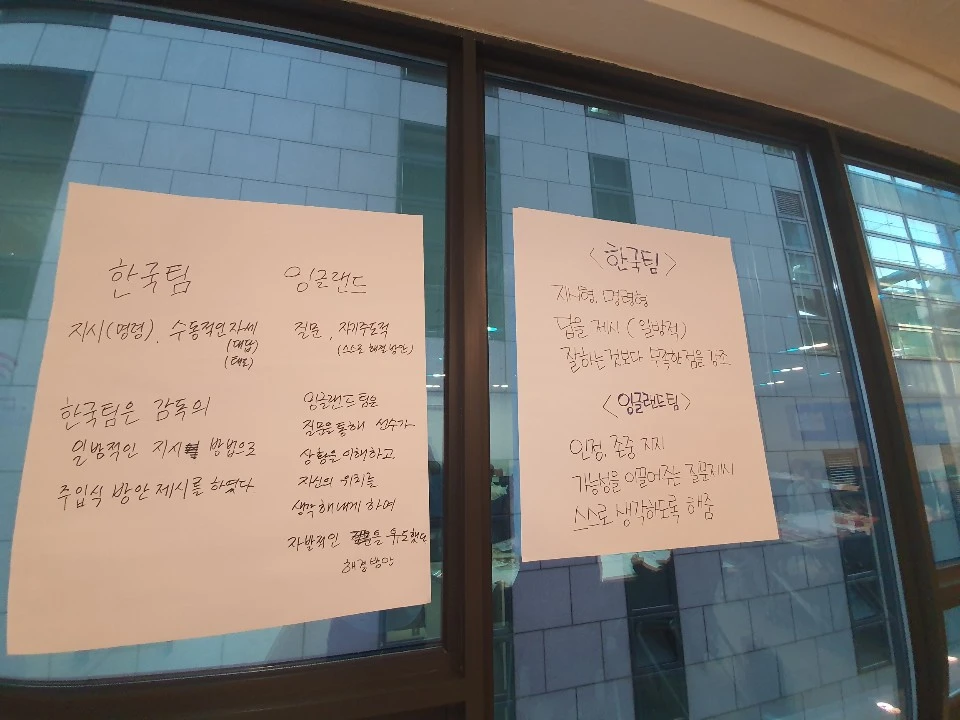 한국팀
지시(명령), 수동적인자세
(대답)
(태도)
한국팀은 감독의
일방적인 지시 방법으로
주입식 방안 제시를 하였다
잉글랜드
질문, 자기주도적
(스스로 해결방안)
잉글랜드팀은
질문을통해 선수가
상황을 이해하고
자신의 위치를
생각해내게 하여
자발적인
해결방안
<한국팀>
지시형, 명령형
답을 제시 (일방적)
잘하는것보다 부족한점을 강조
<잉글랜드팀>
인정, 존중, 지지
가능성을 이끌어주는 질문제시
스스로 생각하도록 해줌